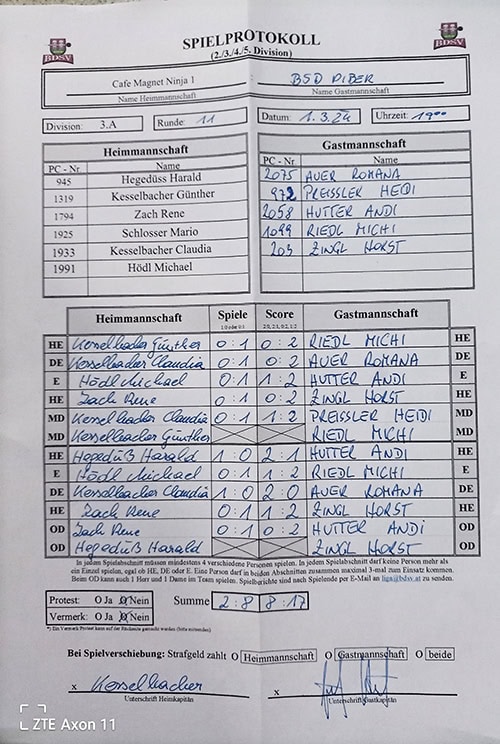 SPIELPROTOKOLL
(2./3./4./5. Division)
BDSV BDSV
Cafe Magnet Ninja 1 : BSD PIBER
Name Heimmannschaft Name Gastmannschaft
Division: 3.A Runde: 11 Datum: 1.3.24 Uhrzeit: 19⁰⁰
Heimmannschaft Gastmannschaft
PC - Nr. Name PC - Nr. Name
945 Hegedüss Harald 2075 AUER ROMANA
1319 Kesselbacher Günther 972 PREISSLER HEIDI
1794 Zach Rene 2058 HUTTER ANDI
1925 Schlosser Mario 1099 RIEDL MICHI
1933 Kesselbacher Claudia 205 ZINGL HORST
1991 Hödl Michael
Heimmannschaft Spiele Score Gastmannschaft
1:0 oder 0:1 2:0, 2:1, 0:2, 1:2
HE Kesselbacher Günther 0:1 0:2 RIEDL MICHI HE
DE Kesselbacher Claudia 0:1 0:2 AUER ROMANA DE
E Hödl Michael 0:1 1:2 HUTTER ANDI E
HE Zach Rene 0:1 0:2 ZINGL HORST HE
MD Kesselbacher Claudia 0:1 1:2 PREISSLER HEIDI MD
MD Kesselbacher Günther RIEDL MICHI MD
HE Hegedüß Harald 1:0 2:1 HUTTER ANDI HE
E Hödl Michael 0:1 1:2 RIEDL MICHI E
DE Kesselbacher Claudia 1:0 2:0 AUER ROMANA DE
HE Zach Rene 0:1 1:2 ZINGL HORST HE
OD Zach Rene 0:1 0:2 HUTTER ANDI OD
OD Hegedüß Harald ZINGL HORST OD
In jedem Spielabschnitt müssen mindestens 4 verschiedene Personen spielen. In jedem Spielabschnitt darf keine Person mehr als
ein Einzel spielen, egal ob HE, DE oder E. Eine Person darf in beiden Abschnitten zusammen maximal 3-mal zum Einsatz kommen.
Beim OD kann auch 1 Herr und 1 Dame im Team spielen. Spielberichte sind nach Spielende per E-Mail an liga@bdsv.at zu senden.
Protest: O Ja O Nein Summe 2:8 8:17
Vermerk: O Ja O Nein
*) Ein Vermerk/Protest kann auf der Rückseite gemacht werden (bitte umwenden)
Bei Spielverschiebung: Strafgeld zahlt O Heimmannschaft O Gastmannschaft O beide
x Kesselbacher x
Unterschrift Heimkapitän Unterschrift Gastkapitän
ZTE Axon 11